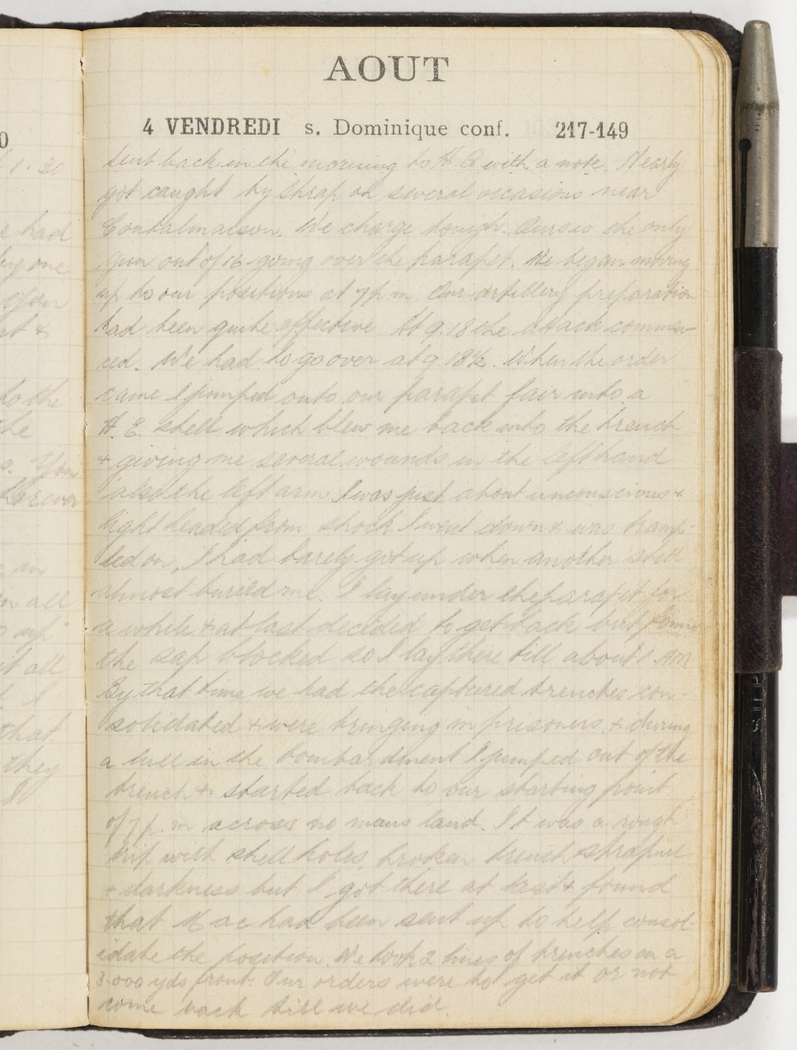 AOUT
4 VENDREDI s. Dominique conf. 217-149
Sent back in the morning to H.Q with a note. Nearly
got caught by shrap on several occasions near
Contalmaison. We charge tonight. Ours is the only
gun out of 16 going over the parapet. We began moving
up to our positions at 7 p m Our artillery preparation
had been quite effective. At 9.15 the attack commen-
ced. We had to go over at 9.18½. When the order
came I jumped onto our parapet fair into a
H. E. shell which blew me back into the trench
+ giving me several wounds in the left hand
also the left arm. I was just about unconscious +
light headed from shock I went down + was tramp-
led on, I had barely got up when another shell
almost buried me. I lay under the parapet for
a while + at last decided to get back but found
the sap blocked so I lay there till about 1 AM
By that time we had the captured trenches con-
solidated + were bringing in prisoners + during
a lull in the bombardment I jumped out of the
trench + started back to our starting point
of 7 p. m across no mans land. It was a rough
trip with shell holes broken trench shrapnel
+ darkness but I got there at last + found
that had been sent up to help consol-
idate the position. We took 2 lines of trenches on a
3.000 yds front. Our orders were to get it or not
come back till we did.
0
1. 20
had
by one
+
to the
the
s. You
in
all
up
it all
I
that
they